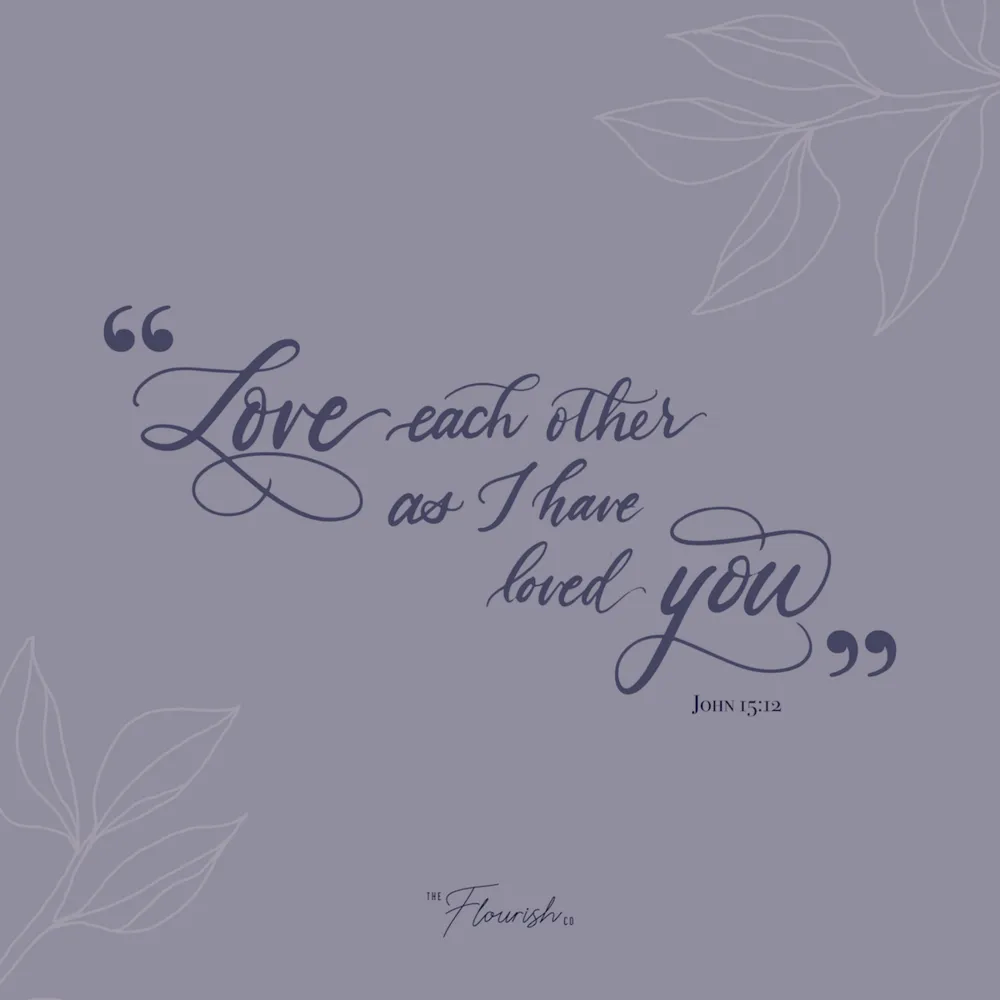 “Love each other
as I have
loved you”
John 15:12
THE Flourish CO